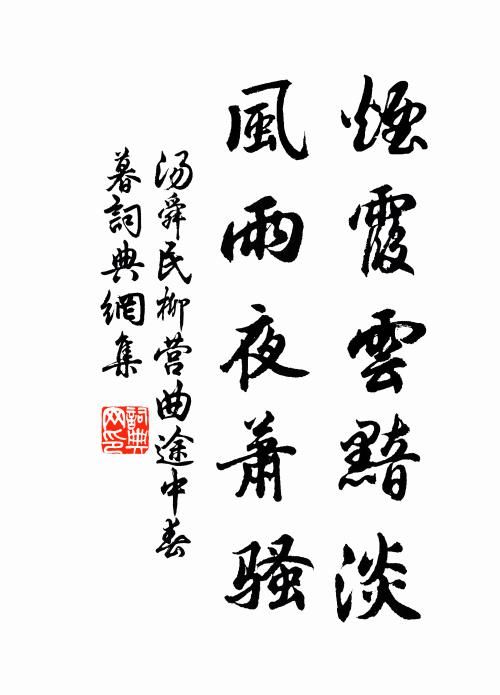 煙霞雲黯淡
風雨夜蕭騷
汤舜民柳营曲途中春
暮詞典網集
詞典网印